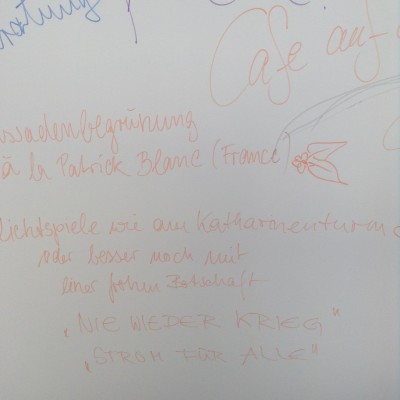 Cafe auf
ssadenbegrünung
à la Patrick Blanc (France)
lichtspiele wie am Katharinenturm
oder besser noch mit
einer frohen Botschaft
„NIE WIEDER KRIEG"
„STROM FÜR ALLE"